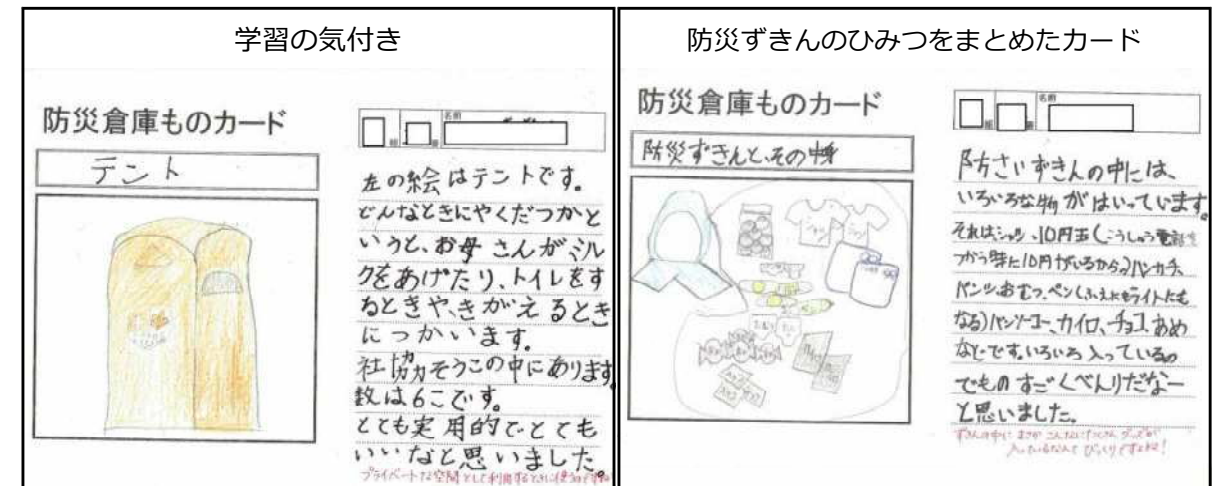 学習の気付き
防災倉庫ものカード
テント
組
番
名前
左の絵はテントです。
どんなときにやくだつかと
いうと、お母さんがミル
クをあげたり、トイレをす
るときや、きがえるとき
につかいます。
社協力そうこの中にあります。
数は6こです。
とても実用的でとても
いいなと思いました。
プライベートな空間として利用するときに使うのですね
防災ずきんのひみつをまとめたカード
防災倉庫ものカード
防災ずきんと、その中身
組
番
名前
防さいずきんの中には、
いろいろな物がはいっています
それはシャツ、10円玉(こうしゅう電話を
つかう時に10円がいるから)ハンカチ、
パンツ、おむつ、ペン(ふえにもライトにも
なる)バンソーコー、カイロ、チョコ、あめ
などです。いろいろ入っているの
でものすごくべんりだなー
と思いました。
ずきんの中にまさかこんなにたくさんグッズが
入っているなんてびっくりですよね!
シャツ
シャツ